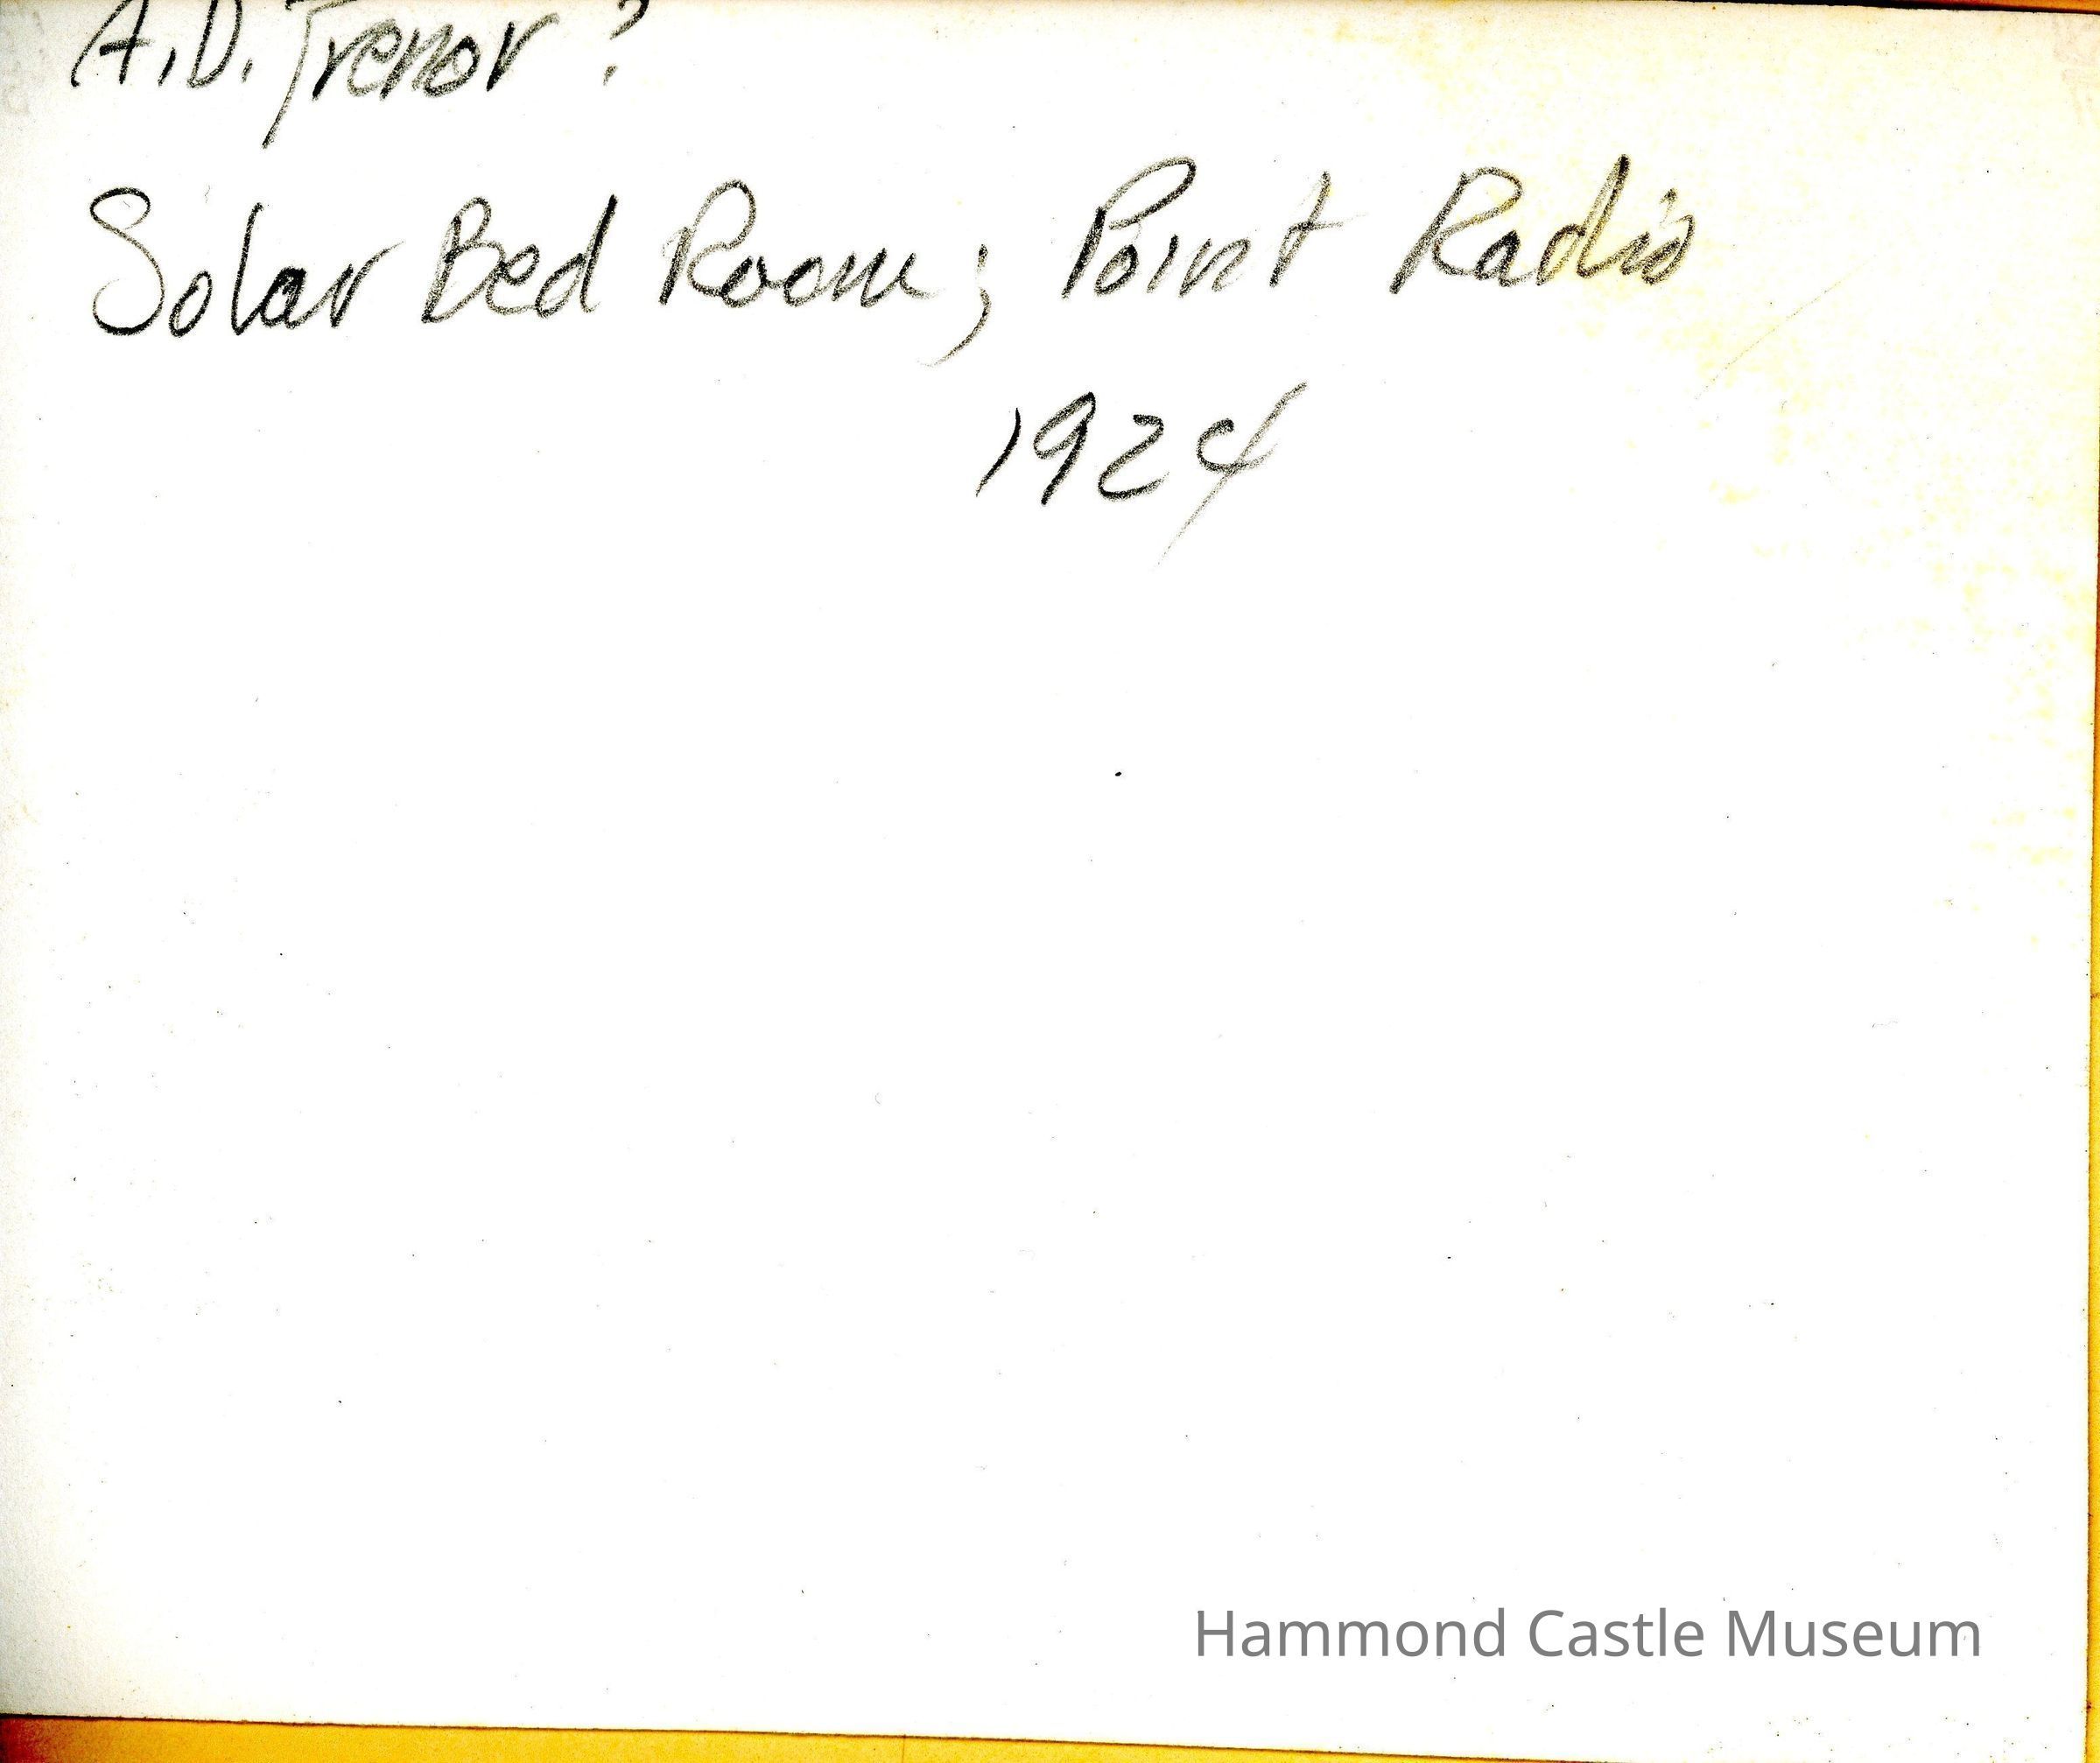 A.D. Trenor?
Solar Bed Room; Point Radio
1924
Hammond Castle Museum